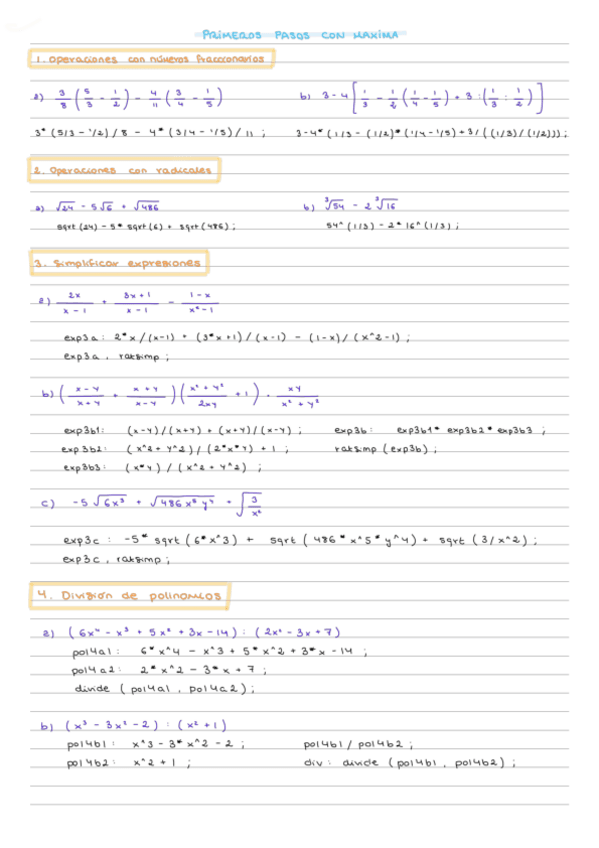 PRIMEROS PASOS CON MAXIMA
1. Operaciones con números fraccionarios
a) 3/8 (5/3 - 1/2) - 4/11 (3/4 - 1/5)
b) 3 - 4 [1/3 - 1/2 (1/4 - 1/5) + 3 : (1/3 : 1/2)]
3* (5/3 - 1/2) / 8 - 4* (3/4 - 1/5) / 11 ;
3-4* (1/3 - (1/2)* (1/4 - 1/5) + 3 / ((1/3) / (1/2))) ;
2. Operaciones con radicales
a) √24 - 5√6 + √486
b) ∛54 - 2 ∛16
sqrt (24) - 5* sqrt (6) + sqrt (486) ;
54^ (1/3) - 2* 16^ (1/3) ;
3. Simplificar expresiones
a) 2x/(x - 1) + (3x + 1)/(x - 1) - (1 - x)/(x² - 1)
exp3a : 2* x / (x-1) + (3* x +1) / (x-1) - (1-x) / (x^2 -1) ;
exp3a , ratsimp ;
b) ((x - y)/(x + y) + (x + y)/(x - y)) ((x² + y²)/2xy + 1) · xy/(x² + y²)
exp3b1: (x-y) / (x+y) + (x+y) / (x-y) ;
exp3b: exp3b1* exp3b2* exp3b3 ;
exp3b2: (x^2 + y^2) / (2*x*y) + 1 ;
ratsimp (exp3b) ;
exp3b3: (x*y) / (x^2 + y^2) ;
c) -5 √6x³ + √486x⁵y⁴ + √(3/x²)
exp3c : -5* sqrt (6* x^3) + sqrt (486* x^5* y^4) + sqrt (3/x^2) ;
exp3c , ratsimp ;
4. División de polinomios
a) (6x⁴ - x³ + 5x² + 3x - 14) : (2x² - 3x + 7)
pol4a1 : 6* x^4 - x^3 + 5* x^2 + 3* x - 14 ;
pol4a2 : 2* x^2 - 3* x + 7 ;
divide (pol4a1 , pol4a2) ;
b) (x³ - 3x² - 2) : (x² + 1)
pol4b1 : x^3 - 3* x^2 - 2 ;
pol4b1 / pol4b2 ;
pol4b2 : x^2 + 1 ;
div : divide (pol4b1 , pol4b2) ;